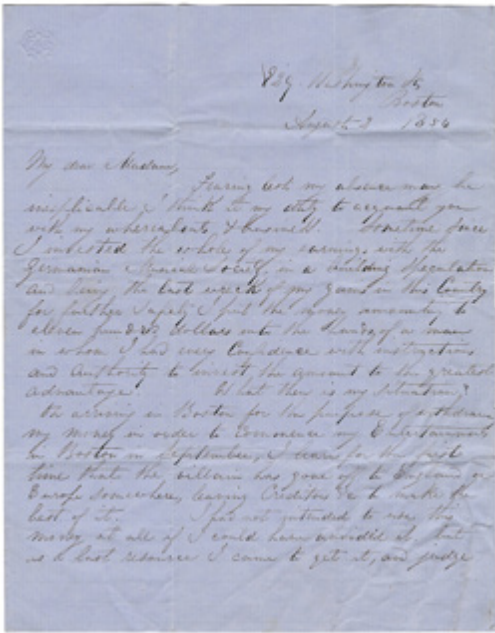 839 Washington St,
Boston
August 2 1854
My dear Madam,
Fearing lest my absence may be
inexplicable, I think it my duty to acquaint you
with my whereabouts & business. Sometime since
I invested the whole of my earnings with the
Germanian Musical Society, in a building speculation
and being the last week of my gains in this Country
for further safety I put the money amounting to
eleven hundred dollars into the hands of a man
in whom I had every Confidence with instructions
and Authority to invest the amount to the greatest
advantage. What then is my situation?
On arriving in Boston for the purpose of withdrawing
my money in order to Commence my Entertainments
in Boston in September, I learn for the first
time that the villain has gone off to England or
Europe somewhere, leaving Creditors &c to make the
best of it. I had not intended to use this
money at all if I could have avoided it, but
as a last resource I came to get it, and judge